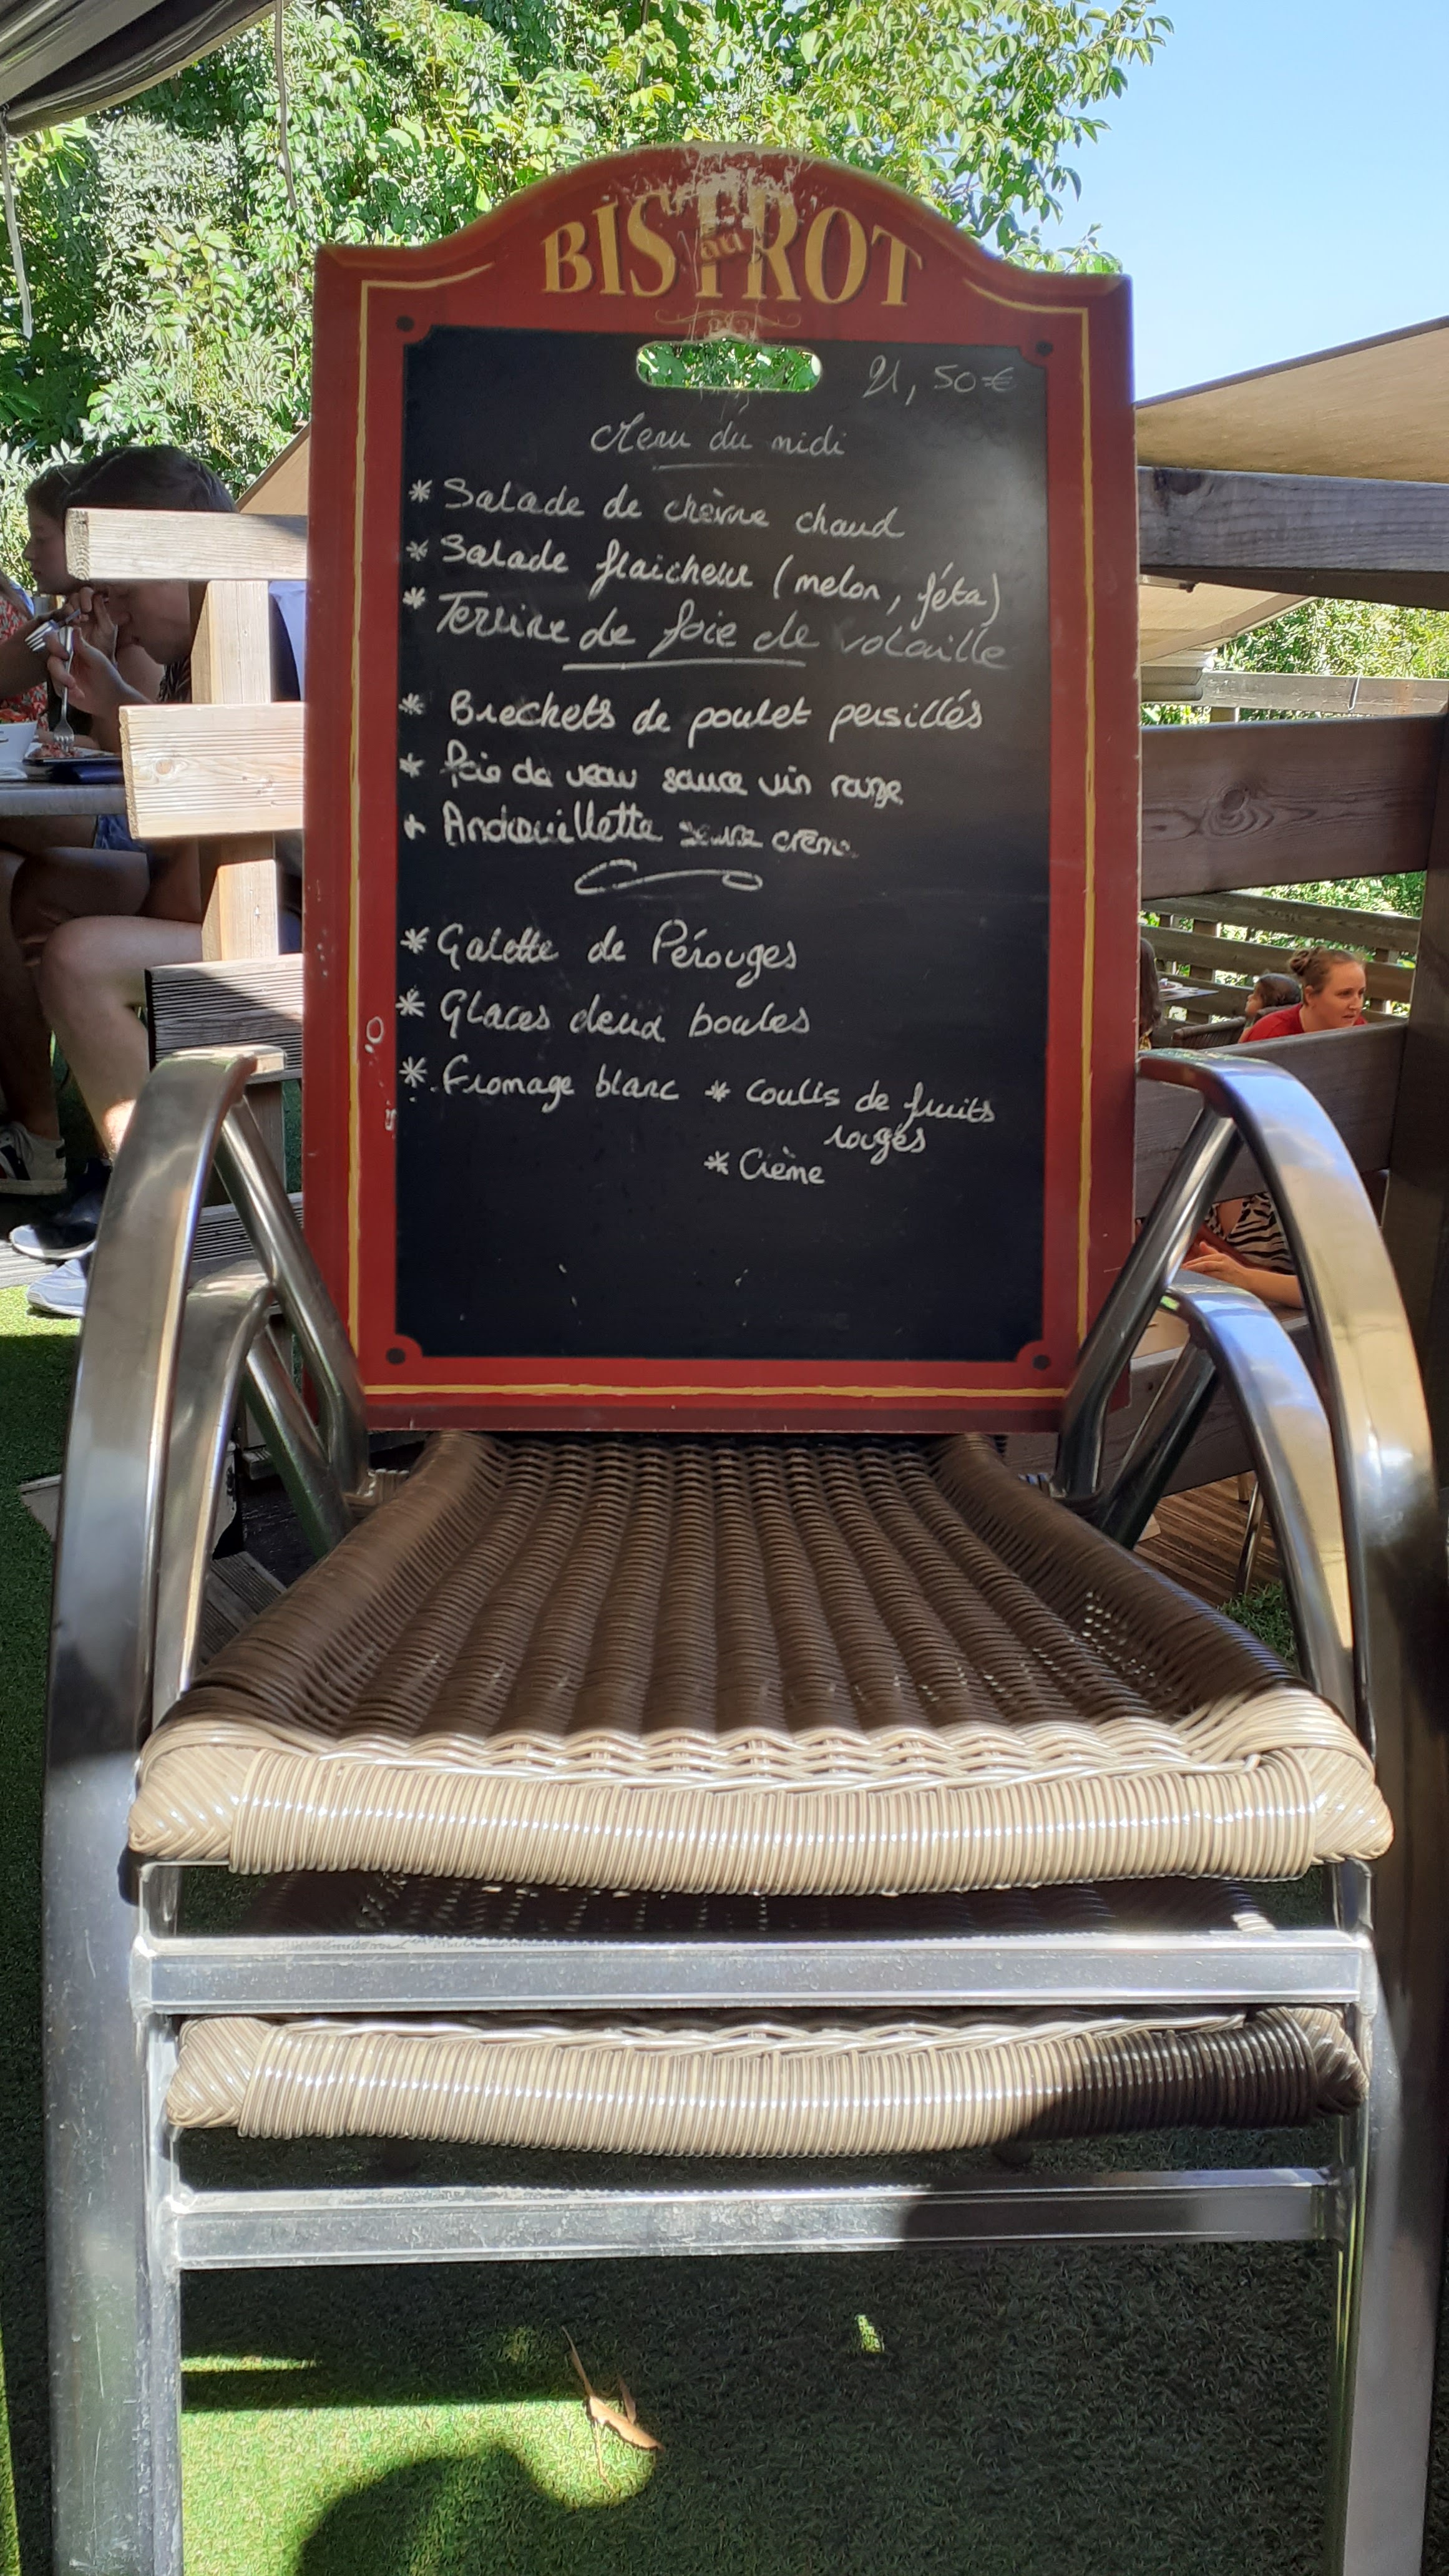 au
BISTROT
21,50€
Menu du midi
* Salade de chèvre chaud
* Salade fraicheur (melon, féta)
* Terrine de foie de volaille
* Brechets de poulet persillés
* foie de veau sauce vin rouge
* Andouillette sauce crème
* Galette de Pérouges
* Glaces deux boules
* Fromage blanc * coulis de fruits
rouges
* Crème